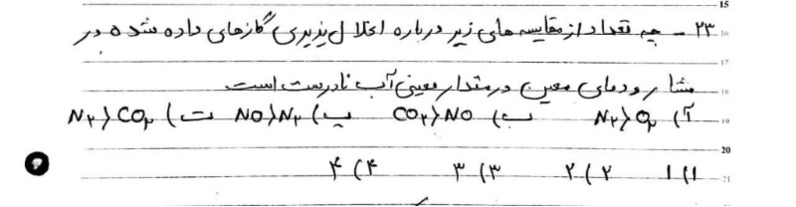 15
۲۳ - چه تعداد از مقایسه های زیر درباره انحلال پذیری گازهای داده شده در
16
17
فشار و دمای معین در مقدار معینی آب نادرست است
18
آ) N₂>O₂ ب) CO₂>NO پ) NO>N₂ ت) N₂>CO₂
19
20
۱) ۱ ۲) ۲ ۳) ۳ ۴) ۴
21